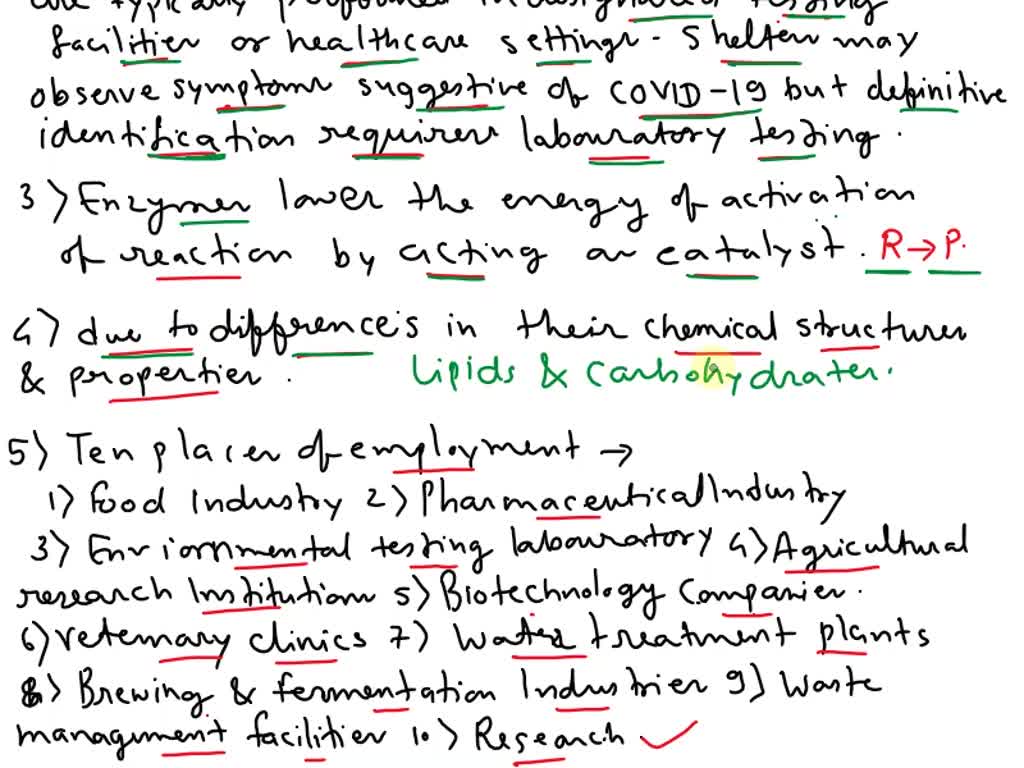 are typically performed in designated testing
facilities or healthcare settings - Shelters may
observe symptoms suggestive of COVID-19 but definitive
identification requires labouratory testing.
3) Enzymes lower the energy of activation
of reaction by acting as catalyst. R → P.
4) due to difference's in their chemical structures
& properties. Lipids & carbohydrates.
5) Ten places of employment →
1) Food Industry 2) Pharmaceutical Industry
3) Enviornmental testing labouratory 4) Agricultural
research Institutions 5) Biotechnology Companies.
6) veternary clinics 7) Water treatment plants
8) Brewing & fermentation Industries 9) Waste
management facilities 10) Research ✓